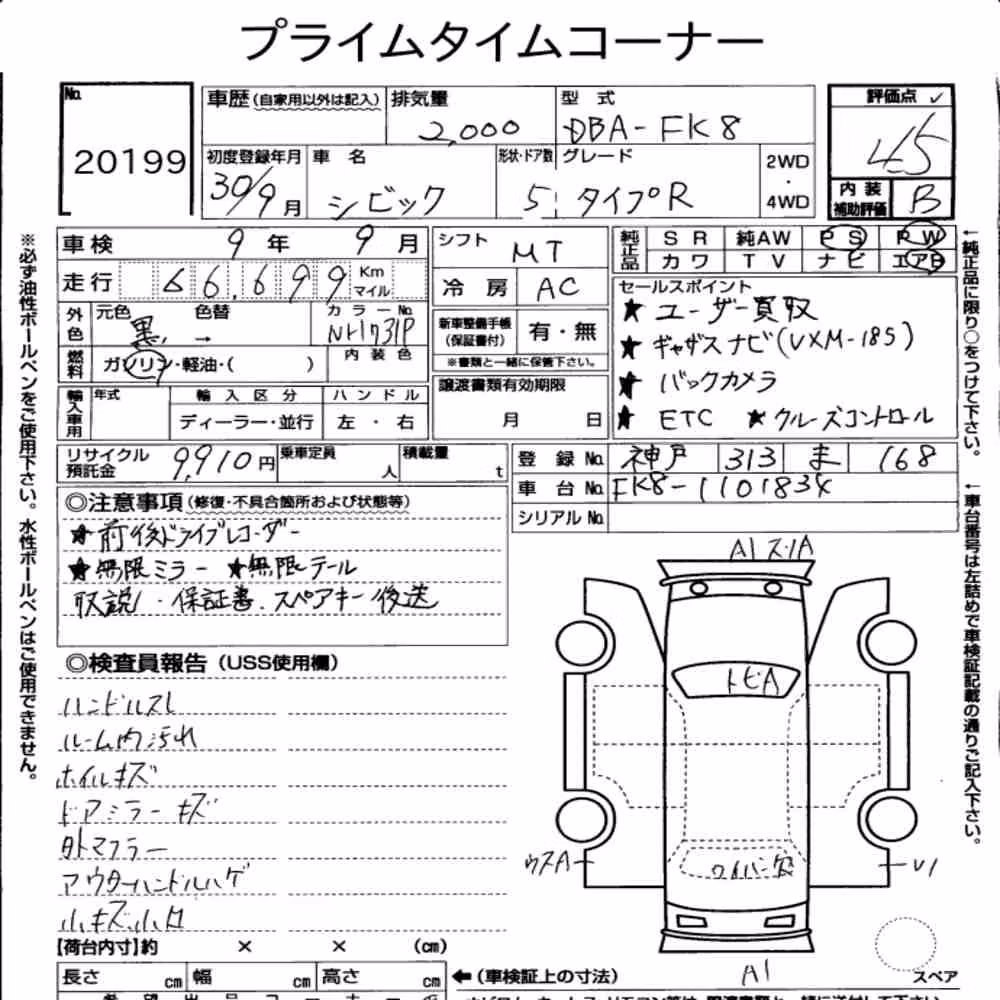 プライムタイムコーナー
No. 20199
車歴(自家用以外は記入) 排気量 2,000 型式 DBA-FK8
評価点 ✓ 4.5
初度登録年月 30/9月 車名 シビック 形状・ドア数 5 グレード タイプR 2WD・4WD
内装補助評価 B
※必ず油性ボールペンをご使用下さい。水性ボールペンはご使用できません。
車検 9年 9月 シフト MT
純正品 SR 純AW PS PW
カワ TV ナビ エアB
走行 66,699 Km マイル 冷房 AC
セールスポイント
★ユーザー買取
★ギャザズナビ(VXM-185)
★バックカメラ
★ETC ★クルーズコントロール
外色 元色 黒 → 色替 カラーNo. NH731P
新車整備手帳(保証書付) 有・無
※書類と一緒に保管下さい。
燃料 ガソリン・軽油・( ) 内装色
譲渡書類有効期限 月 日
輸入車用 年式 輸入区分 ハンドル
ディーラー・並行 左・右
←純正品に限り○をつけて下さい。
←車台番号は左詰めで車検証記載の通りご記入下さい。
リサイクル預託金 9,910円 乗車定員 人 積載量 t
登録No. 神戸 313 ま 168
車台No. FK8-1101834
シリアルNo.
◎注意事項(修復・不具合箇所および状態等)
★前後ドライブレコーダー
★無限ミラー ★無限テール
取説・保証書.スペアキー後送
◎検査員報告(USS使用欄)
ハンドルスレ
ルーム内汚れ
ホイルキズ
ドアミラーキズ
外マフラー
アウターハンドルハゲ
小キズ.小凹
A1スリA
トビA
ウスA
ワイパー欠
U1
A1
スペア
【荷台内寸】約 × × (cm)
長さ cm 幅 cm 高さ cm ←(車検証上の寸法)